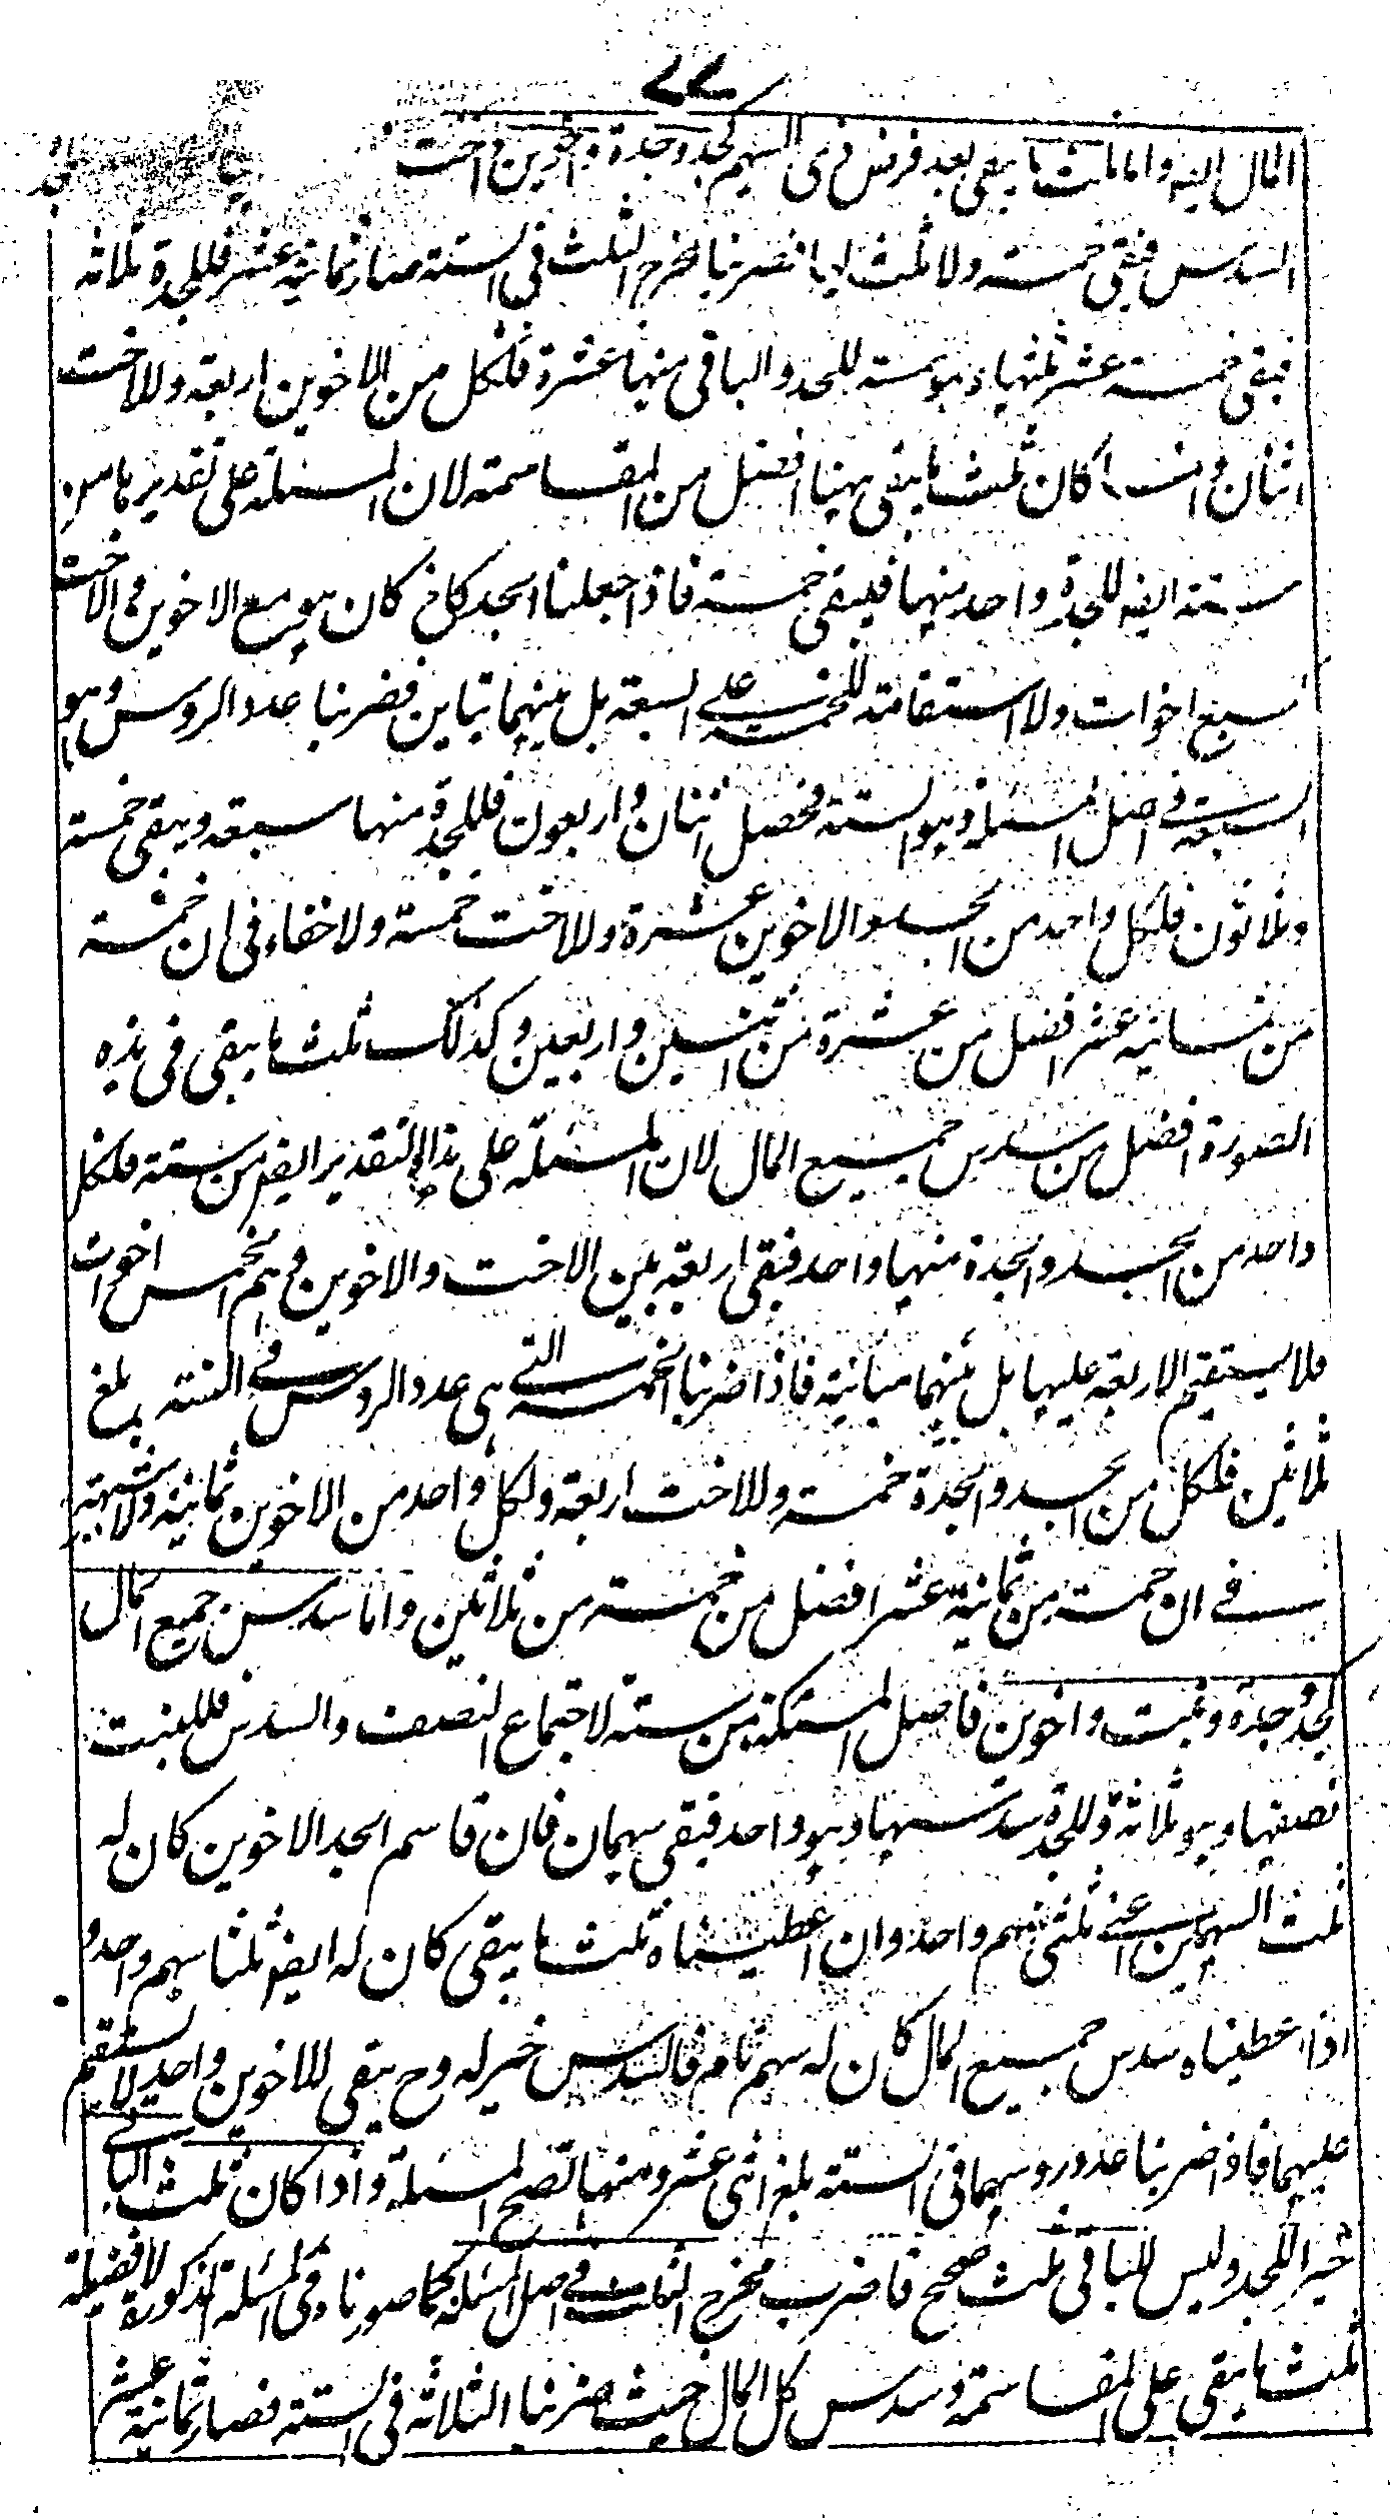 ٧٧
المال اليه واما ثلث ما يبقى بعد فرض ذى السهم كجد وجدة واخوين واخت
السدس فبقى خمسة ولا ثلث لها فضربنا مخرج الثلث فى الستة صار ثمانية عشر فللجدة ثلاثة
فبقى خمسة عشر ثلثها وهو خمسة للجد والباقى منها عشرة فلكل من الاخوين اربعة وللاخت
اثنان وانما كان ثلث ما بقى ههنا افضل من المقاسمة لان المسئلة على تقديرها من
ستة ايضا للجدة واحد منها فيبقى خمسة فاذا جعلنا الجد كاخ كان هو مع الاخوين والاخت
كسبع اخوات ولا استقامة للخمسة على السبعة بل بينهما تباين فضربنا عدد الروس وهو
السبعة فى اصل المسئلة وهو الستة فحصل اثنان واربعون فللجدة منها سبعة ويبقى خمسة
وثلاثون فلكل واحد من الجد والاخوين عشرة وللاخت خمسة ولا خفاء فى ان خمسة
من ثمانية عشر افضل من عشرة من اثنين واربعين وكذلك ثلث ما يبقى فى هذه
الصورة افضل من سدس جميع المال لان المسئلة على هذا التقدير ايضا من ستة فلكل
واحد من الجد والجدة منها واحد فبقى اربعة بين الاخت والاخوين وهم كخمس اخوات
فلا يستقيم الاربعة عليها بل بينهما مباينة فاذا ضربنا الخمسة التى هى عدد الروس فى الستة بلغ
ثلاثين فلكل من الجد والجدة خمسة وللاخت اربعة ولكل واحد من الاخوين ثمانية ولا شبهة
فى ان خمسة من ثمانية عشر افضل من خمسة من ثلاثين واما سدس جميع المال
كجد وجدة وبنت واخوين فاصل المسئلة من ستة لاجتماع النصف والسدس فللبنت
نصفها وهو ثلاثة وللجدة سدسها وهو واحد فبقى سهمان فان قاسم الجد الاخوين كان له
ثلث السهمين اعنى ثلثى سهم واحد وان اعطيناه ثلث ما يبقى كان له ايضا ثلثا سهم واحد و
اذا اعطيناه سدس جميع المال كان له سهم تام فالسدس خير له وح يبقى للاخوين واحد لا يستقيم
عليهما فاذا ضربنا عدد روسهما فى الستة بلغ اثنى عشر ومنها تصح المسئلة واذا كان ثلث الباقى
خيرا للجد وليس للباقى ثلث صحيح فاضرب مخرج الثلث فى اصل المسئلة كما صورناه فى المسئلة المذكورة لافضلية
ثلث ما يبقى على المقاسمة وسدس كل المال حيث ضربنا الثلاثة فى الستة فصار ثمانية عشر